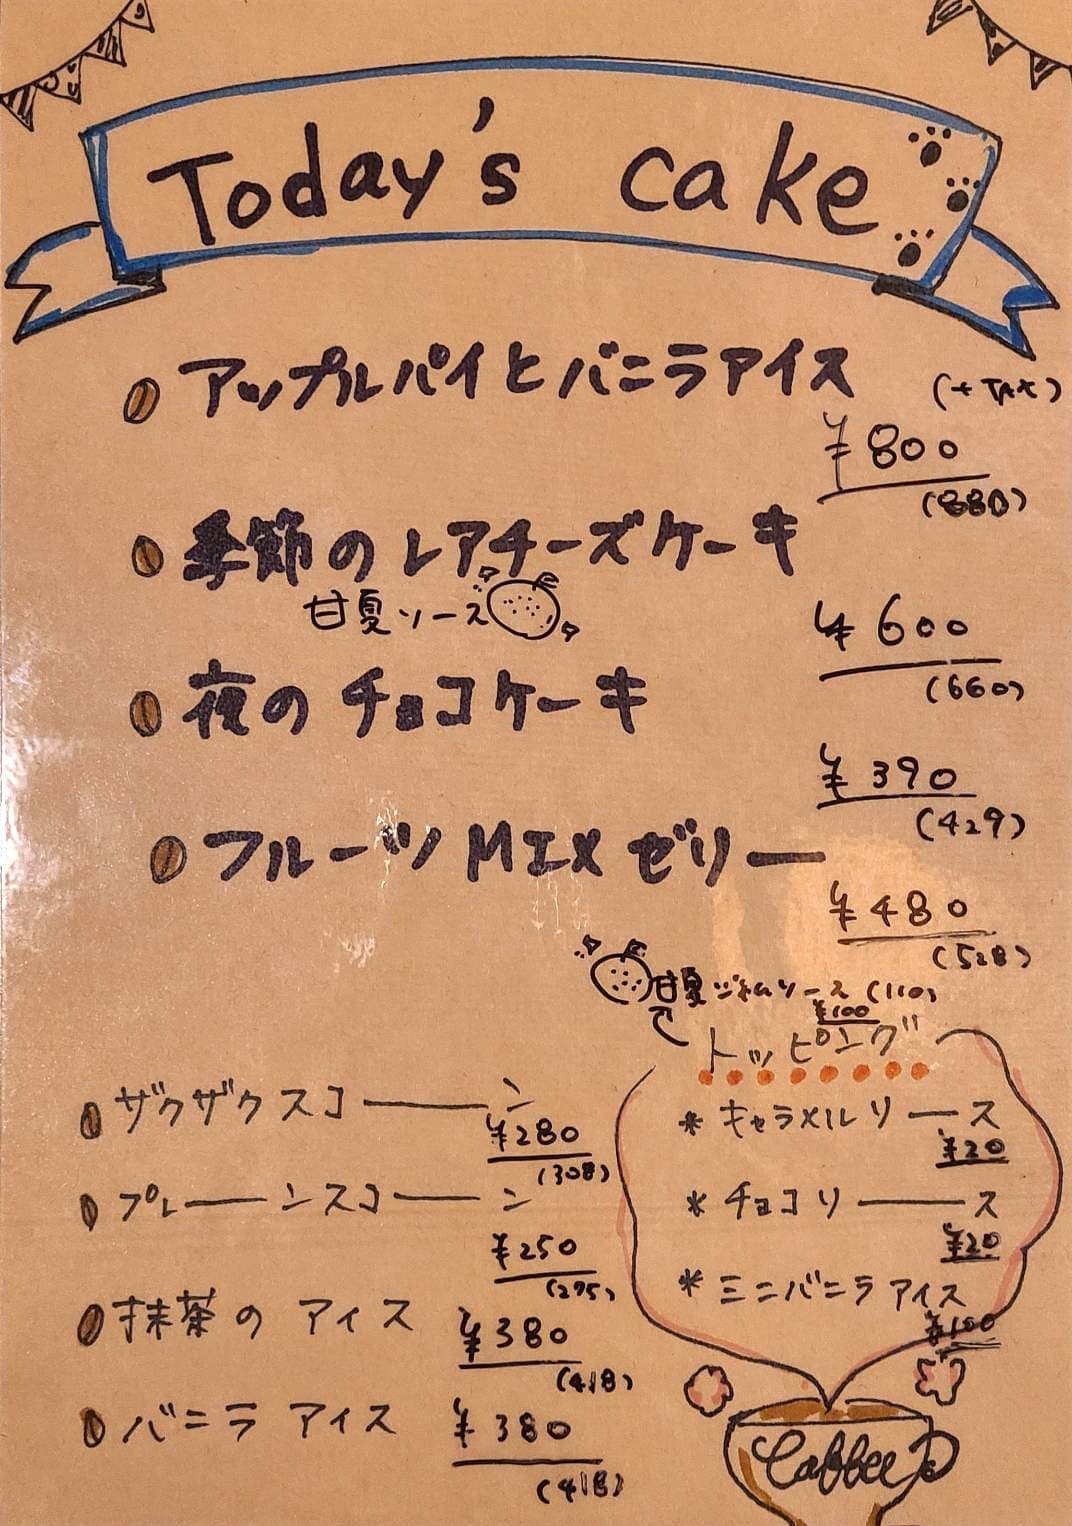 Today's cake
アップルパイとバニラアイス
(+TAX)
¥800
(880)
季節のレアチーズケーキ
甘夏ソース
¥600
(660)
夜のチョコケーキ
¥390
(429)
フルーツMIXゼリー
¥480
(528)
甘夏ジャムソース (110)
¥100
トッピング
*キャラメルソース
¥20
*チョコソース
¥20
*ミニバニラアイス
¥100
ザクザクスコーン
¥280
(308)
プレーンスコーン
¥250
(275)
抹茶のアイス
¥380
(418)
バニラアイス
¥380
(418)
Coffee